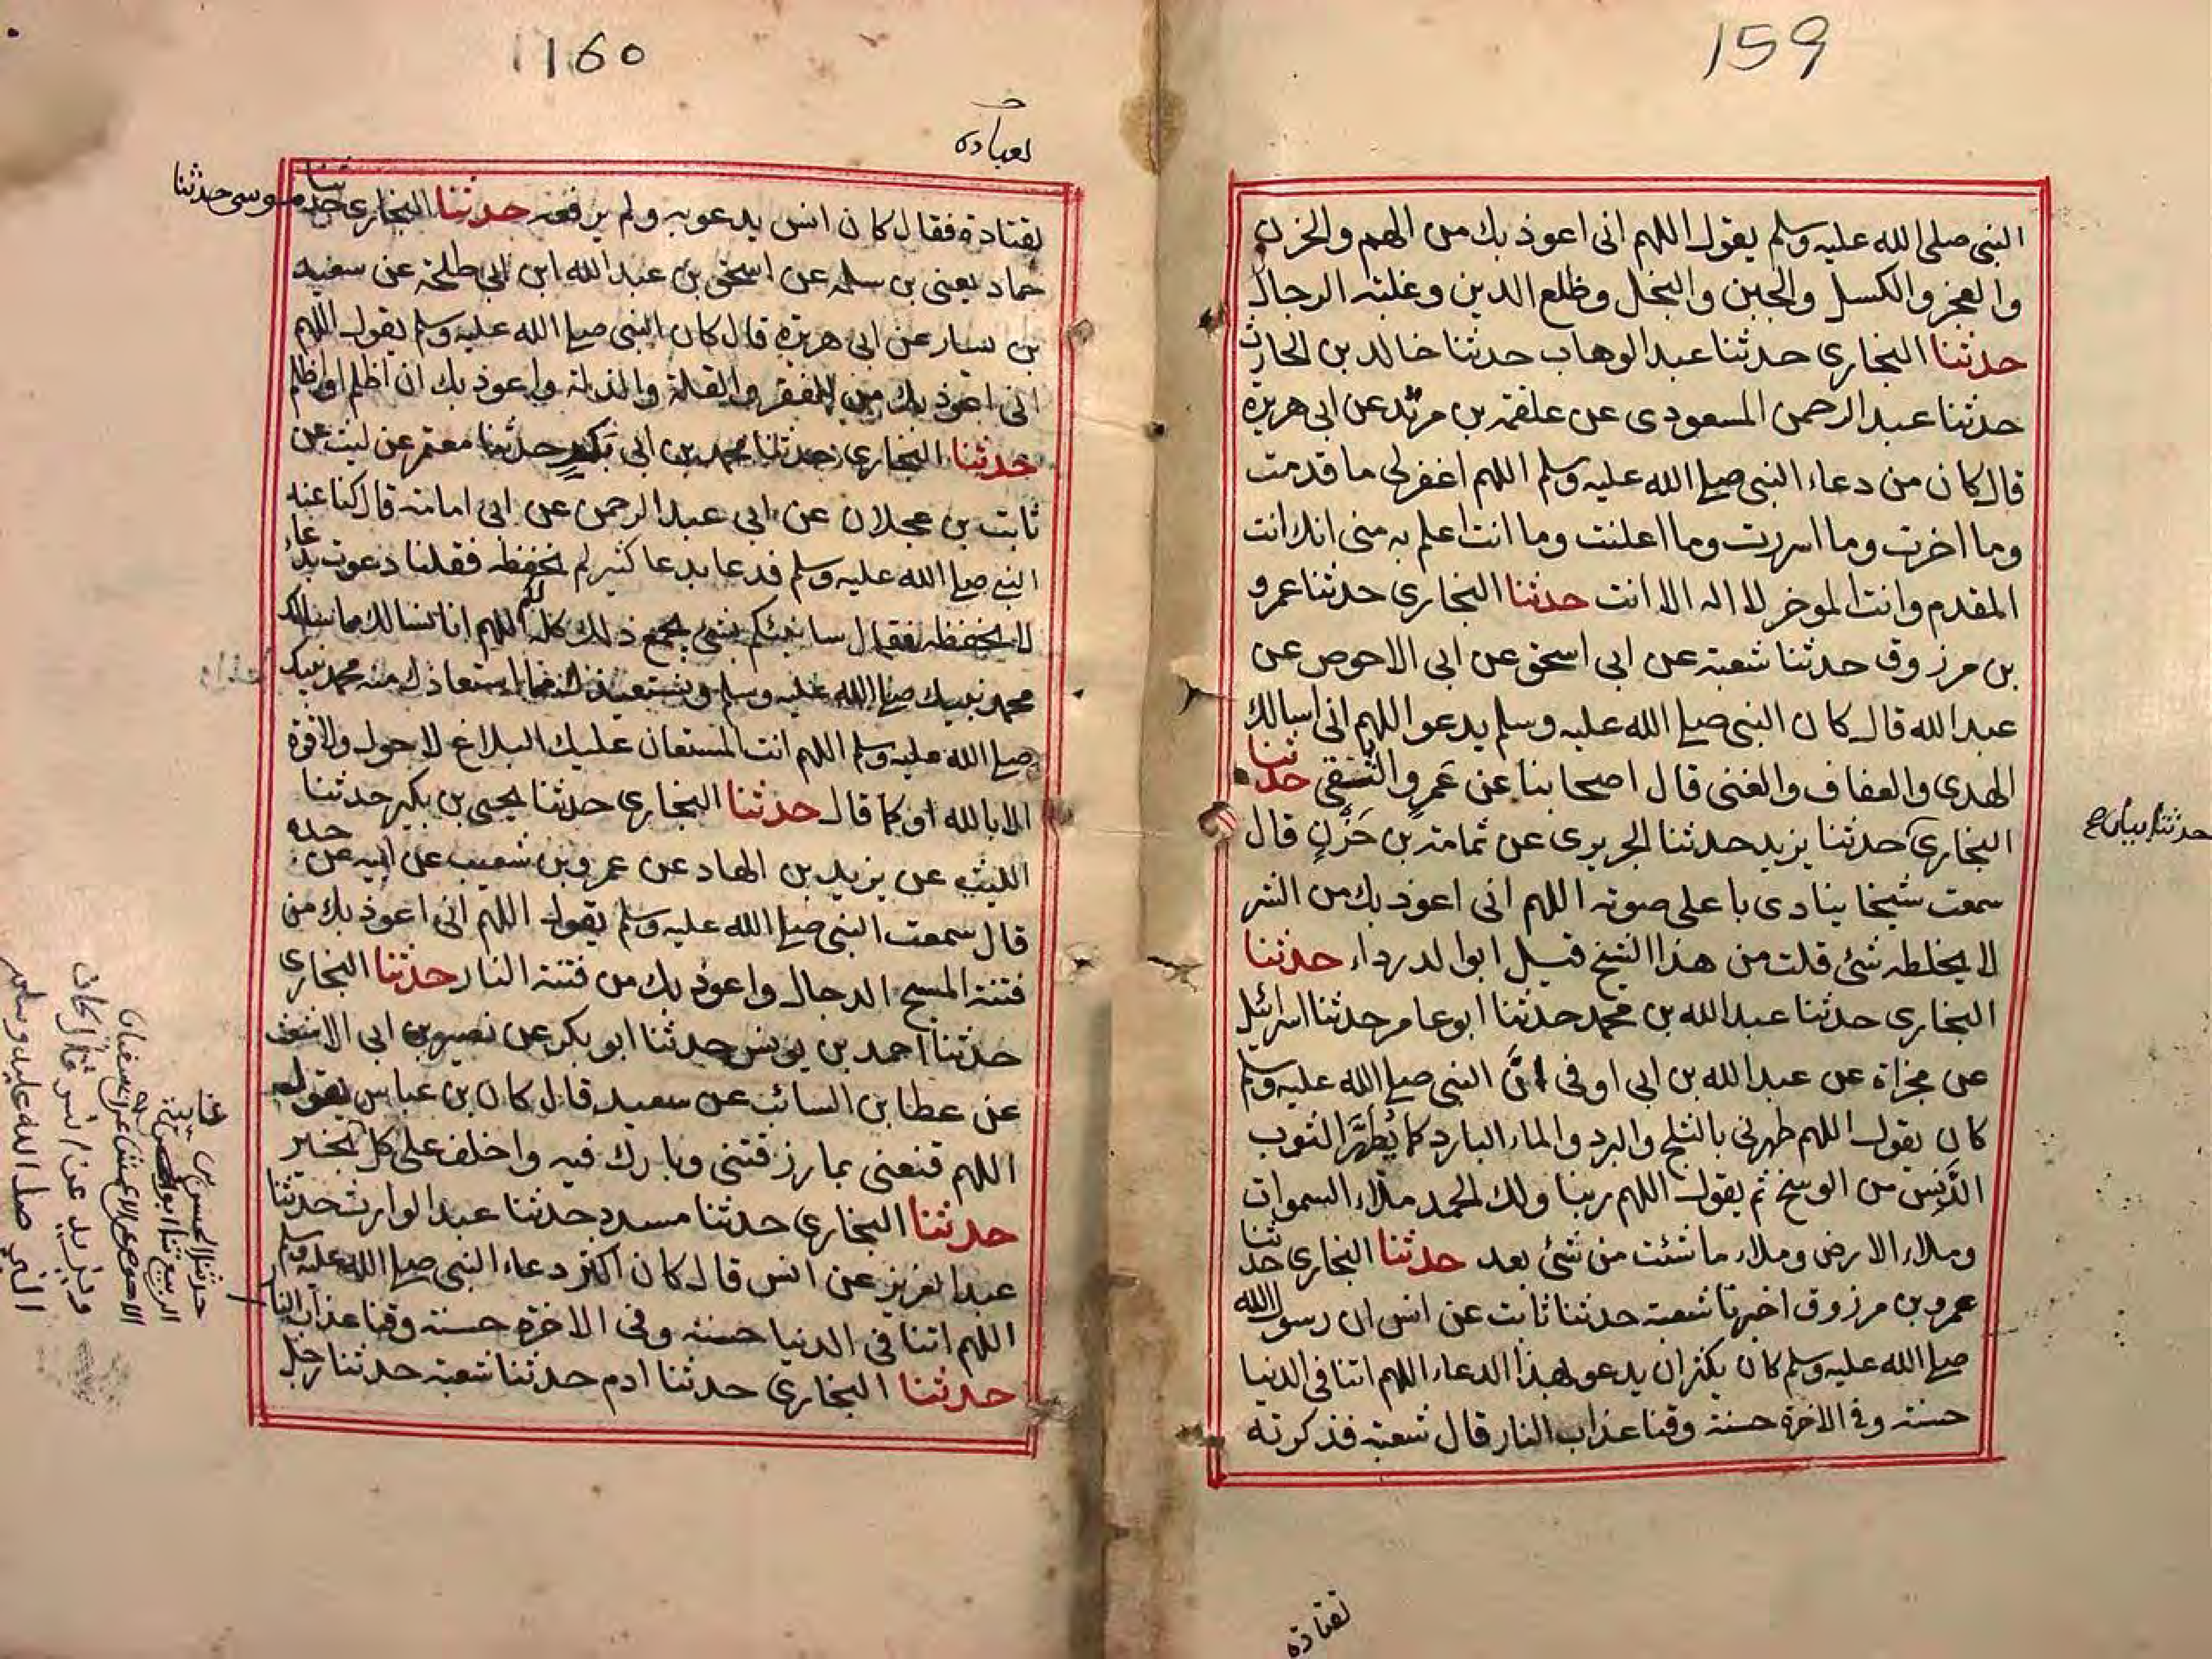 159
النبى صلى الله عليه وسلم يقول اللهم انى اعوذ بك من الهم والحزن
والعجز والكسل والجبن والبخل وظلع الدين وغلبة الرجال
حدثنا البخارى حدثنا عبد الوهاب حدثنا خالد بن الحارث
حدثنا عبد الرحمن المسعودى عن علقمة بن مرثد عن ابى هريرة
قال كان من دعاء النبى صلى الله عليه وسلم اللهم اغفر لى ما قدمت
وما اخرت وما اسررت وما اعلنت وما انت اعلم به منى انك انت
المقدم وانت الموخر لا اله الا انت حدثنا البخارى حدثنا عمرو
بن مرزوق حدثنا شعبة عن ابى اسحق عن ابى الاحوص عن
عبد الله قال كان النبى صلى الله عليه وسلم يدعو اللهم انى اسالك
الهدى والعفاف والغنى قال اصحابنا عن عمرو والتقى حدثنا
البخارى حدثنا يزيد حدثنا الجريرى عن ثمامة بن حزن قال
سمعت شيخا ينادى باعلى صوته اللهم انى اعوذ بك من الشر
لا يخلطه شئ قلت من هذا الشيخ قيل ابو الدرداء حدثنا
البخارى حدثنا عبد الله بن محمد حدثنا ابو عامر حدثنا اسرائيل
عن مجزاة عن عبد الله بن ابى اوفى ان النبى صلى الله عليه وسلم
كان يقول اللهم طهرنى بالثلج والبرد والماء البارد كما يطهر الثوب
الدنس من الوسخ ثم يقول اللهم ربنا ولك الحمد ملاء السموات
وملاء الارض وملاء ما شئت من شئ بعد حدثنا البخارى حدثنا
عمرو بن مرزوق اخبرنا شعبة حدثنا ثابت عن انس ان رسول الله
صلى الله عليه وسلم كان يكثر ان يدعو بهذا الدعاء اللهم اتنا فى الدنيا
حسنة وفى الاخرة حسنة وقنا عذاب النار قال شعبة فذكرته
لقتادة
160
لقتادة فقال كان انس يدعو به ولم يرفعه حدثنا البخارى حدثنا موسى حدثنا
حماد يعنى بن سلمه عن اسحق بن عبد الله ابن ابى طلحة عن سعيد
بن يسار عن ابى هريرة قال كان النبى صلى الله عليه وسلم يقول اللهم
انى اعوذ بك من الفقر والقلة والذلة واعوذ بك ان اظلم او اظلم
حدثنا البخارى حدثنا محمد بن ابى بكر حدثنا معتمر عن ليث عن
ثابت بن عجلان عن ابى عبد الرحمن عن ابى امامة قال كنا عند
النبى صلى الله عليه وسلم فدعا بدعا كثير لم نحفظه فقلنا دعوت بدعاء
لا نحفظه فقال سانبئكم بشئ يجمع ذلك كله لكم اللهم انا نسالك مما سالك
محمد نبيك صلى الله عليه وسلم ونستعيذك مما استعاذك منه محمد نبيك
صلى الله عليه وسلم اللهم انت المستعان عليك البلاغ لا حول ولا قوة
الا بالله او كما قال حدثنا البخارى حدثنا يحيى بن بكير حدثنا
الليث عن يزيد بن الهاد عن عمرو بن شعيب عن ابيه عن جده
قال سمعت النبى صلى الله عليه وسلم يقول اللهم انى اعوذ بك من
فتنة المسيح الدجال واعوذ بك من فتنة النار حدثنا البخارى
حدثنا احمد بن يونس حدثنا ابو بكر عن نصير بن ابى الاشعث
عن عطا بن السائب عن سعيد قال كان بن عباس يقول
اللهم قنعنى بما رزقتنى وبارك فيه واخلف على كل بخير
حدثنا البخارى حدثنا مسدد حدثنا عبد الوارث حدثنا
عبد العزيز عن انس قال كان اكثر دعاء النبى صلى الله عليه وسلم
اللهم اتنا فى الدنيا حسنة وفى الاخرة حسنة وقنا عذاب النار
حدثنا البخارى حدثنا ادم حدثنا شعبة حدثنا رجل
حدثنا الحسن بن
الربيع ثنا ابو
الاحوص عن الاعمش عن ابى سفيان
ويزيد عن انس قال كان
النبى صلى الله عليه وسلم